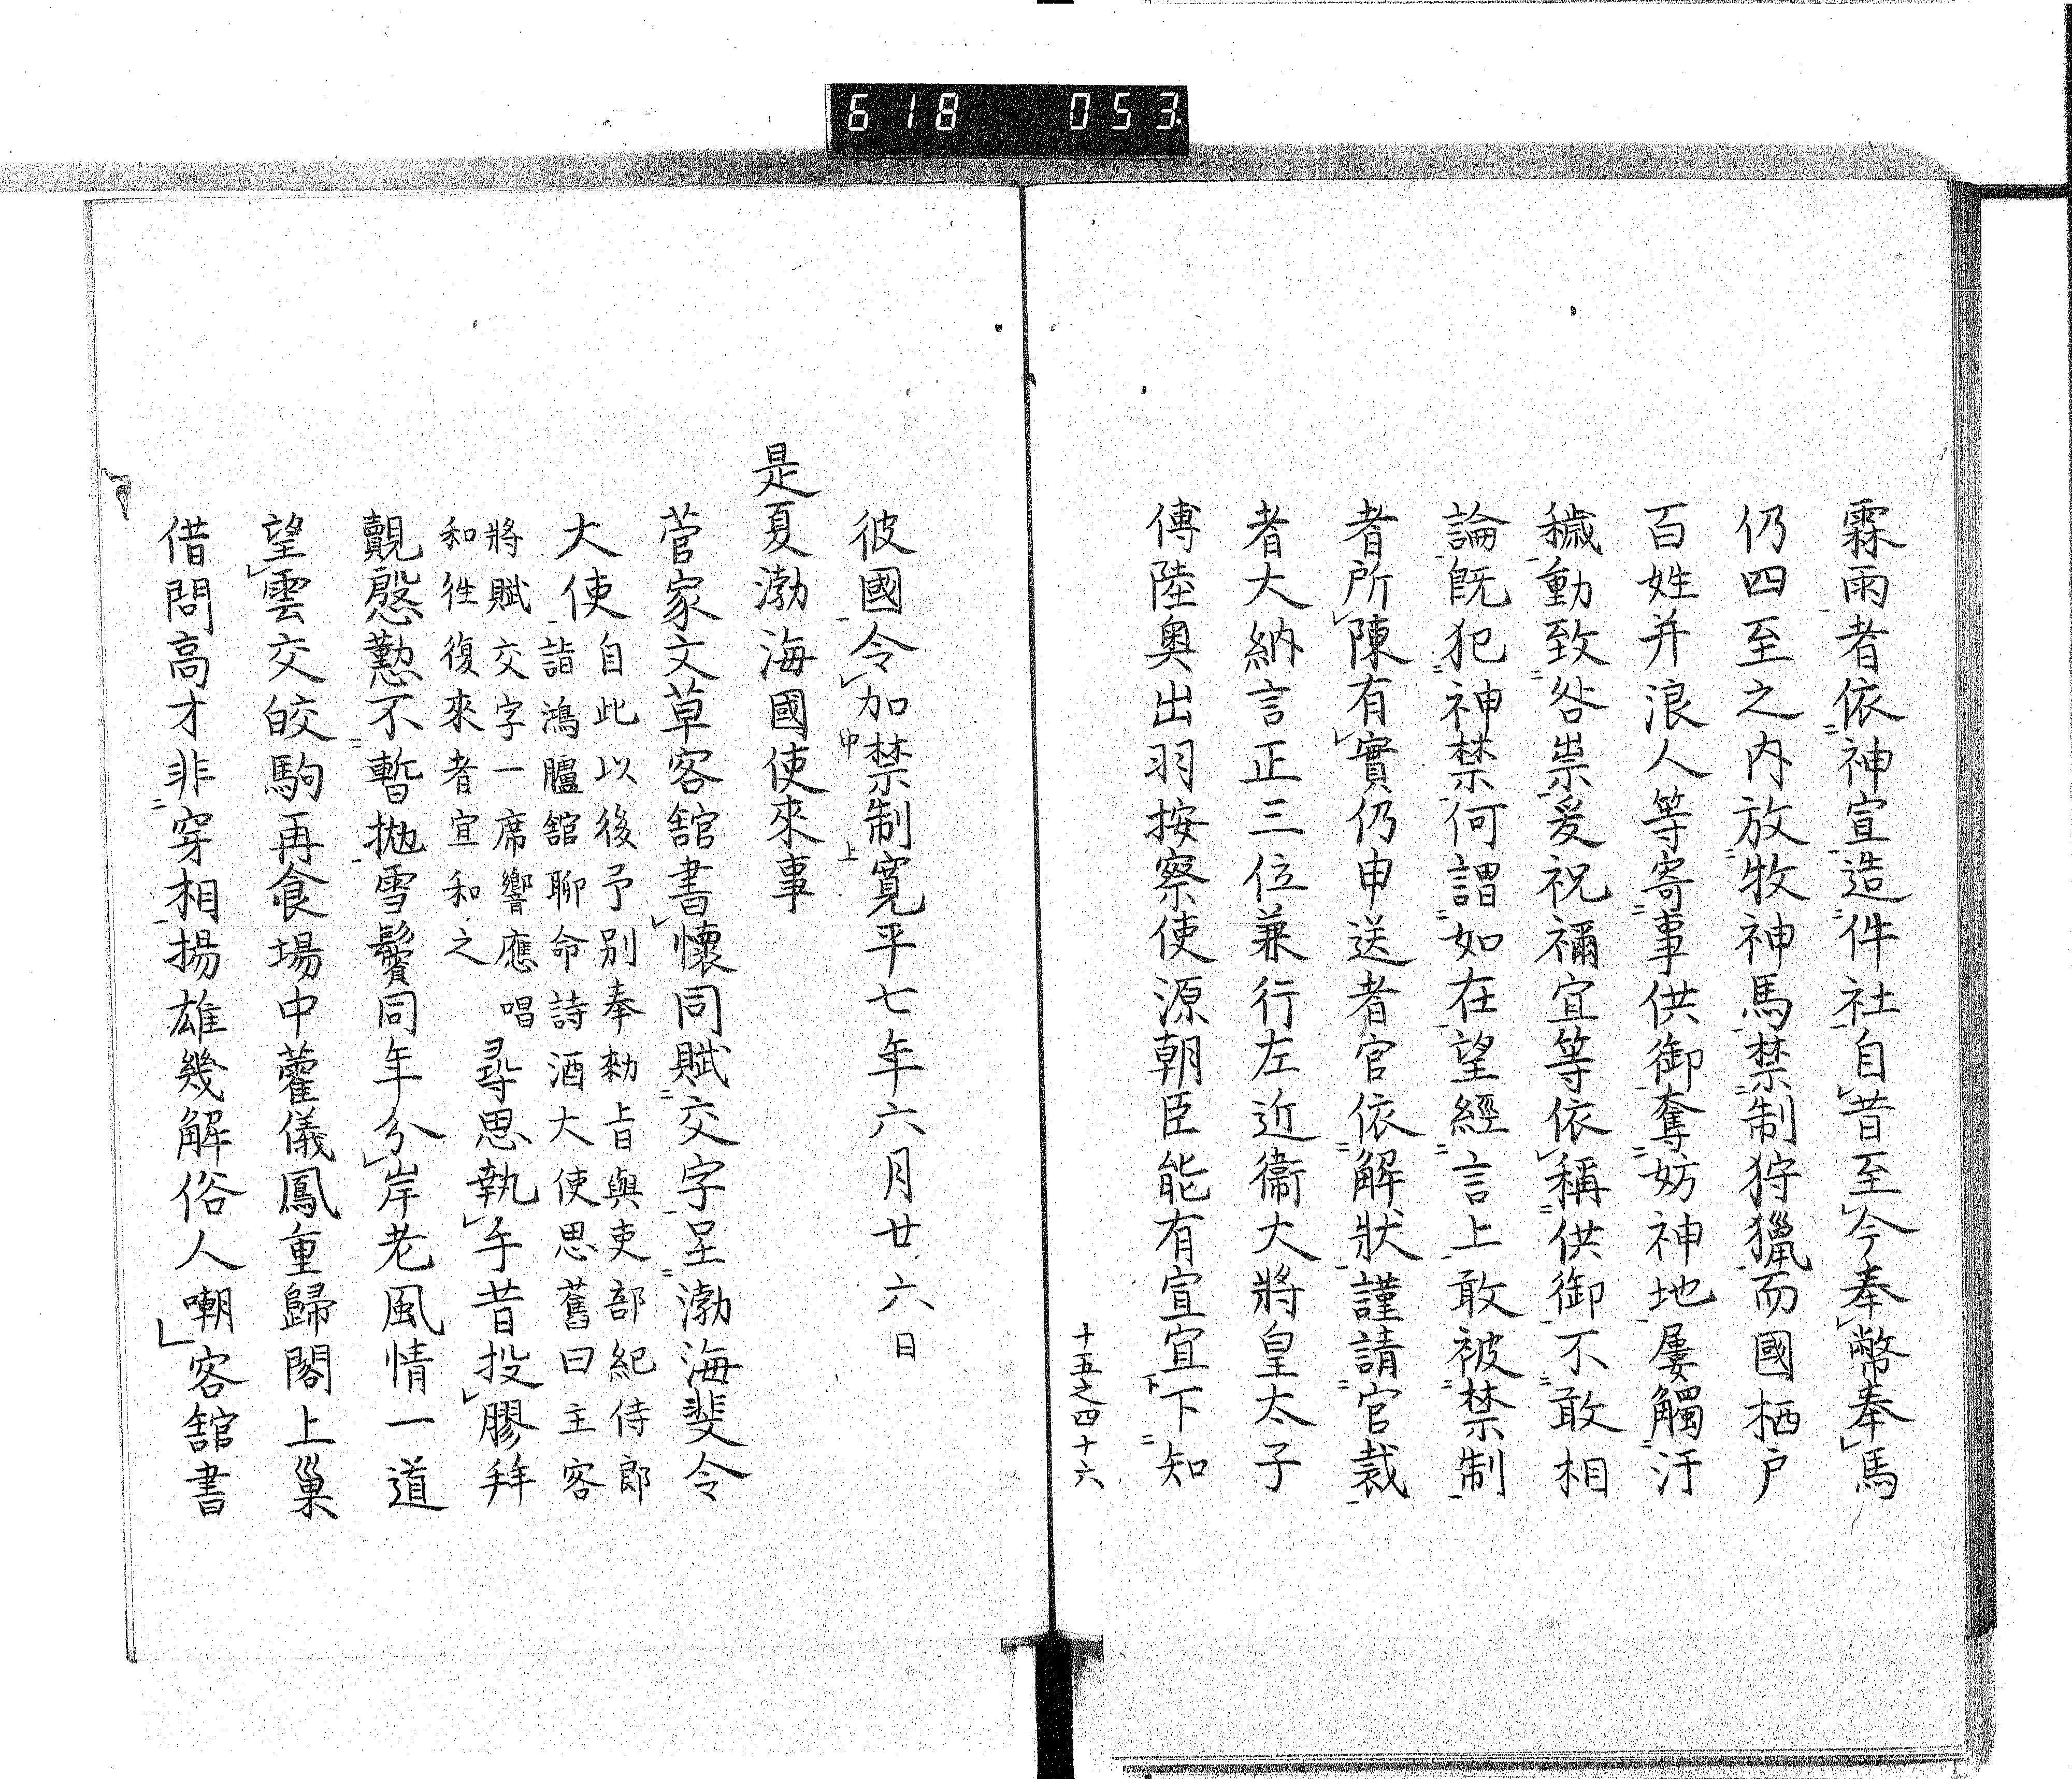 618 053
霖雨者依神宣造件社自昔至今奉幣奉馬
仍四至之内放牧神馬禁制狩獵而國栖戸
百姓并浪人等寄事供御奪妨神地屢觸汙
穢動致咎祟爰祝禰宜等依稱供御不敢相
論既犯神禁何謂如在望經言上敢被禁制
者所陳有實仍申送者官依解狀謹請官裁
者大納言正三位兼行左近衞大將皇太子
傅陸奥出羽按察使源朝臣能有宣宜下知
十五之四十六
彼國令加禁制寛平七年六月廿六日
是夏渤海國使來事
菅家文草客舘書懷同賦交字呈渤海斐令
大使自此以後予別奉勅旨與吏部紀侍郎
詣鴻臚舘聊命詩酒大使思舊日主客
將賦交字一席響應唱
和徃復來者宜和之
尋思執手昔投膠拜
覿慇懃不暫拋雪鬢同年分岸老風情一道
望雲交皎駒再食場中藿儀鳳重歸閣上巢
借問高才非穿相揚雄幾解俗人嘲客舘書